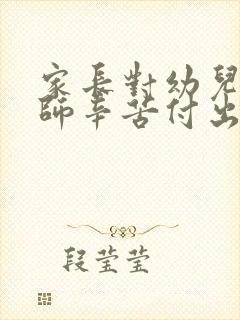 家長對幼兒
師辛苦付出
段瑩瑩